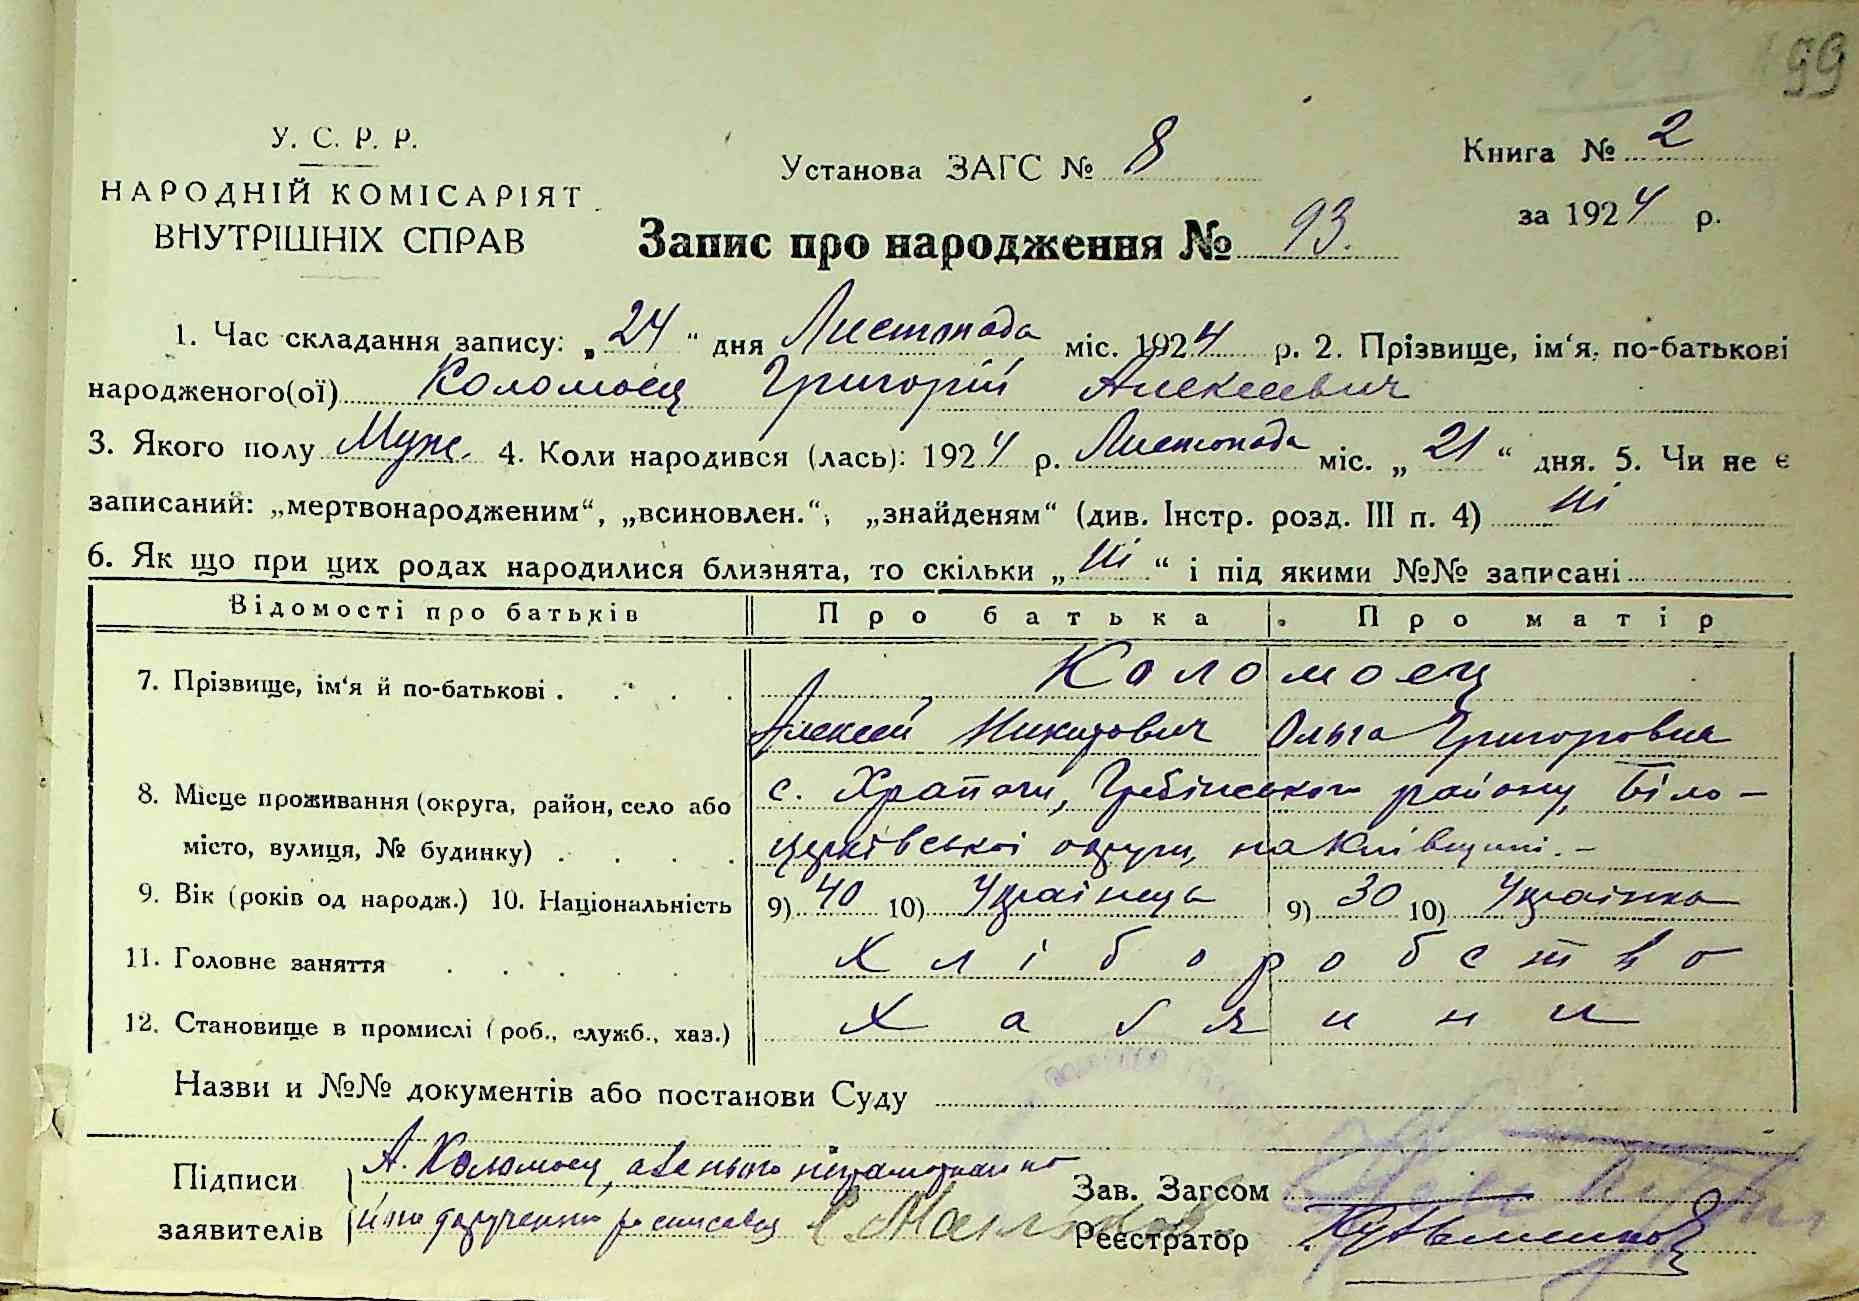 99
У. С. Р. Р.
НАРОДНІЙ КОМІСАРІЯТ
ВНУТРІШНІХ СПРАВ
Установа ЗАГС № 8
Книга № 2
за 1924 р.
Запис про народження № 93.
1. Час складання запису: „24" дня Листопада міс. 1924 р. 2. Прізвище, ім'я, по-батькові
народженого(ої) Коломоец Григорій Алексеевич
3. Якого полу Муж. 4. Коли народився (лась): 1924 р. Листопада міс. „21" дня. 5. Чи не є
записаний: „мертвонародженим", „всиновлен.", „знайденям" (див. Інстр. розд. III п. 4) ні
6. Як що при цих родах народилися близнята, то скільки „ні" і під якими №№ записані
Відомості про батьків Про батька Про матір
7. Прізвище, ім'я й по-батькові Коломоец
Алексей Никитович Ольга Григоровна
8. Місце проживання (округа, район, село або с. Храпачи, Гребінського району, Біло-
місто, вулиця, № будинку) церківської округи, на Київщині. –
9. Вік (років од народж.) 10. Національність 9) 40 10) Українець 9) 30 10) Українка
11. Головне заняття Хліборобство
12. Становище в промислі (роб., служб., хаз.) Хазяини
Назви и №№ документів або постанови Суду
Підписи А. Коломоец, а за нього неграмотного
заявителів й по доручению росписавсь
Зав. Загсом
Реєстратор